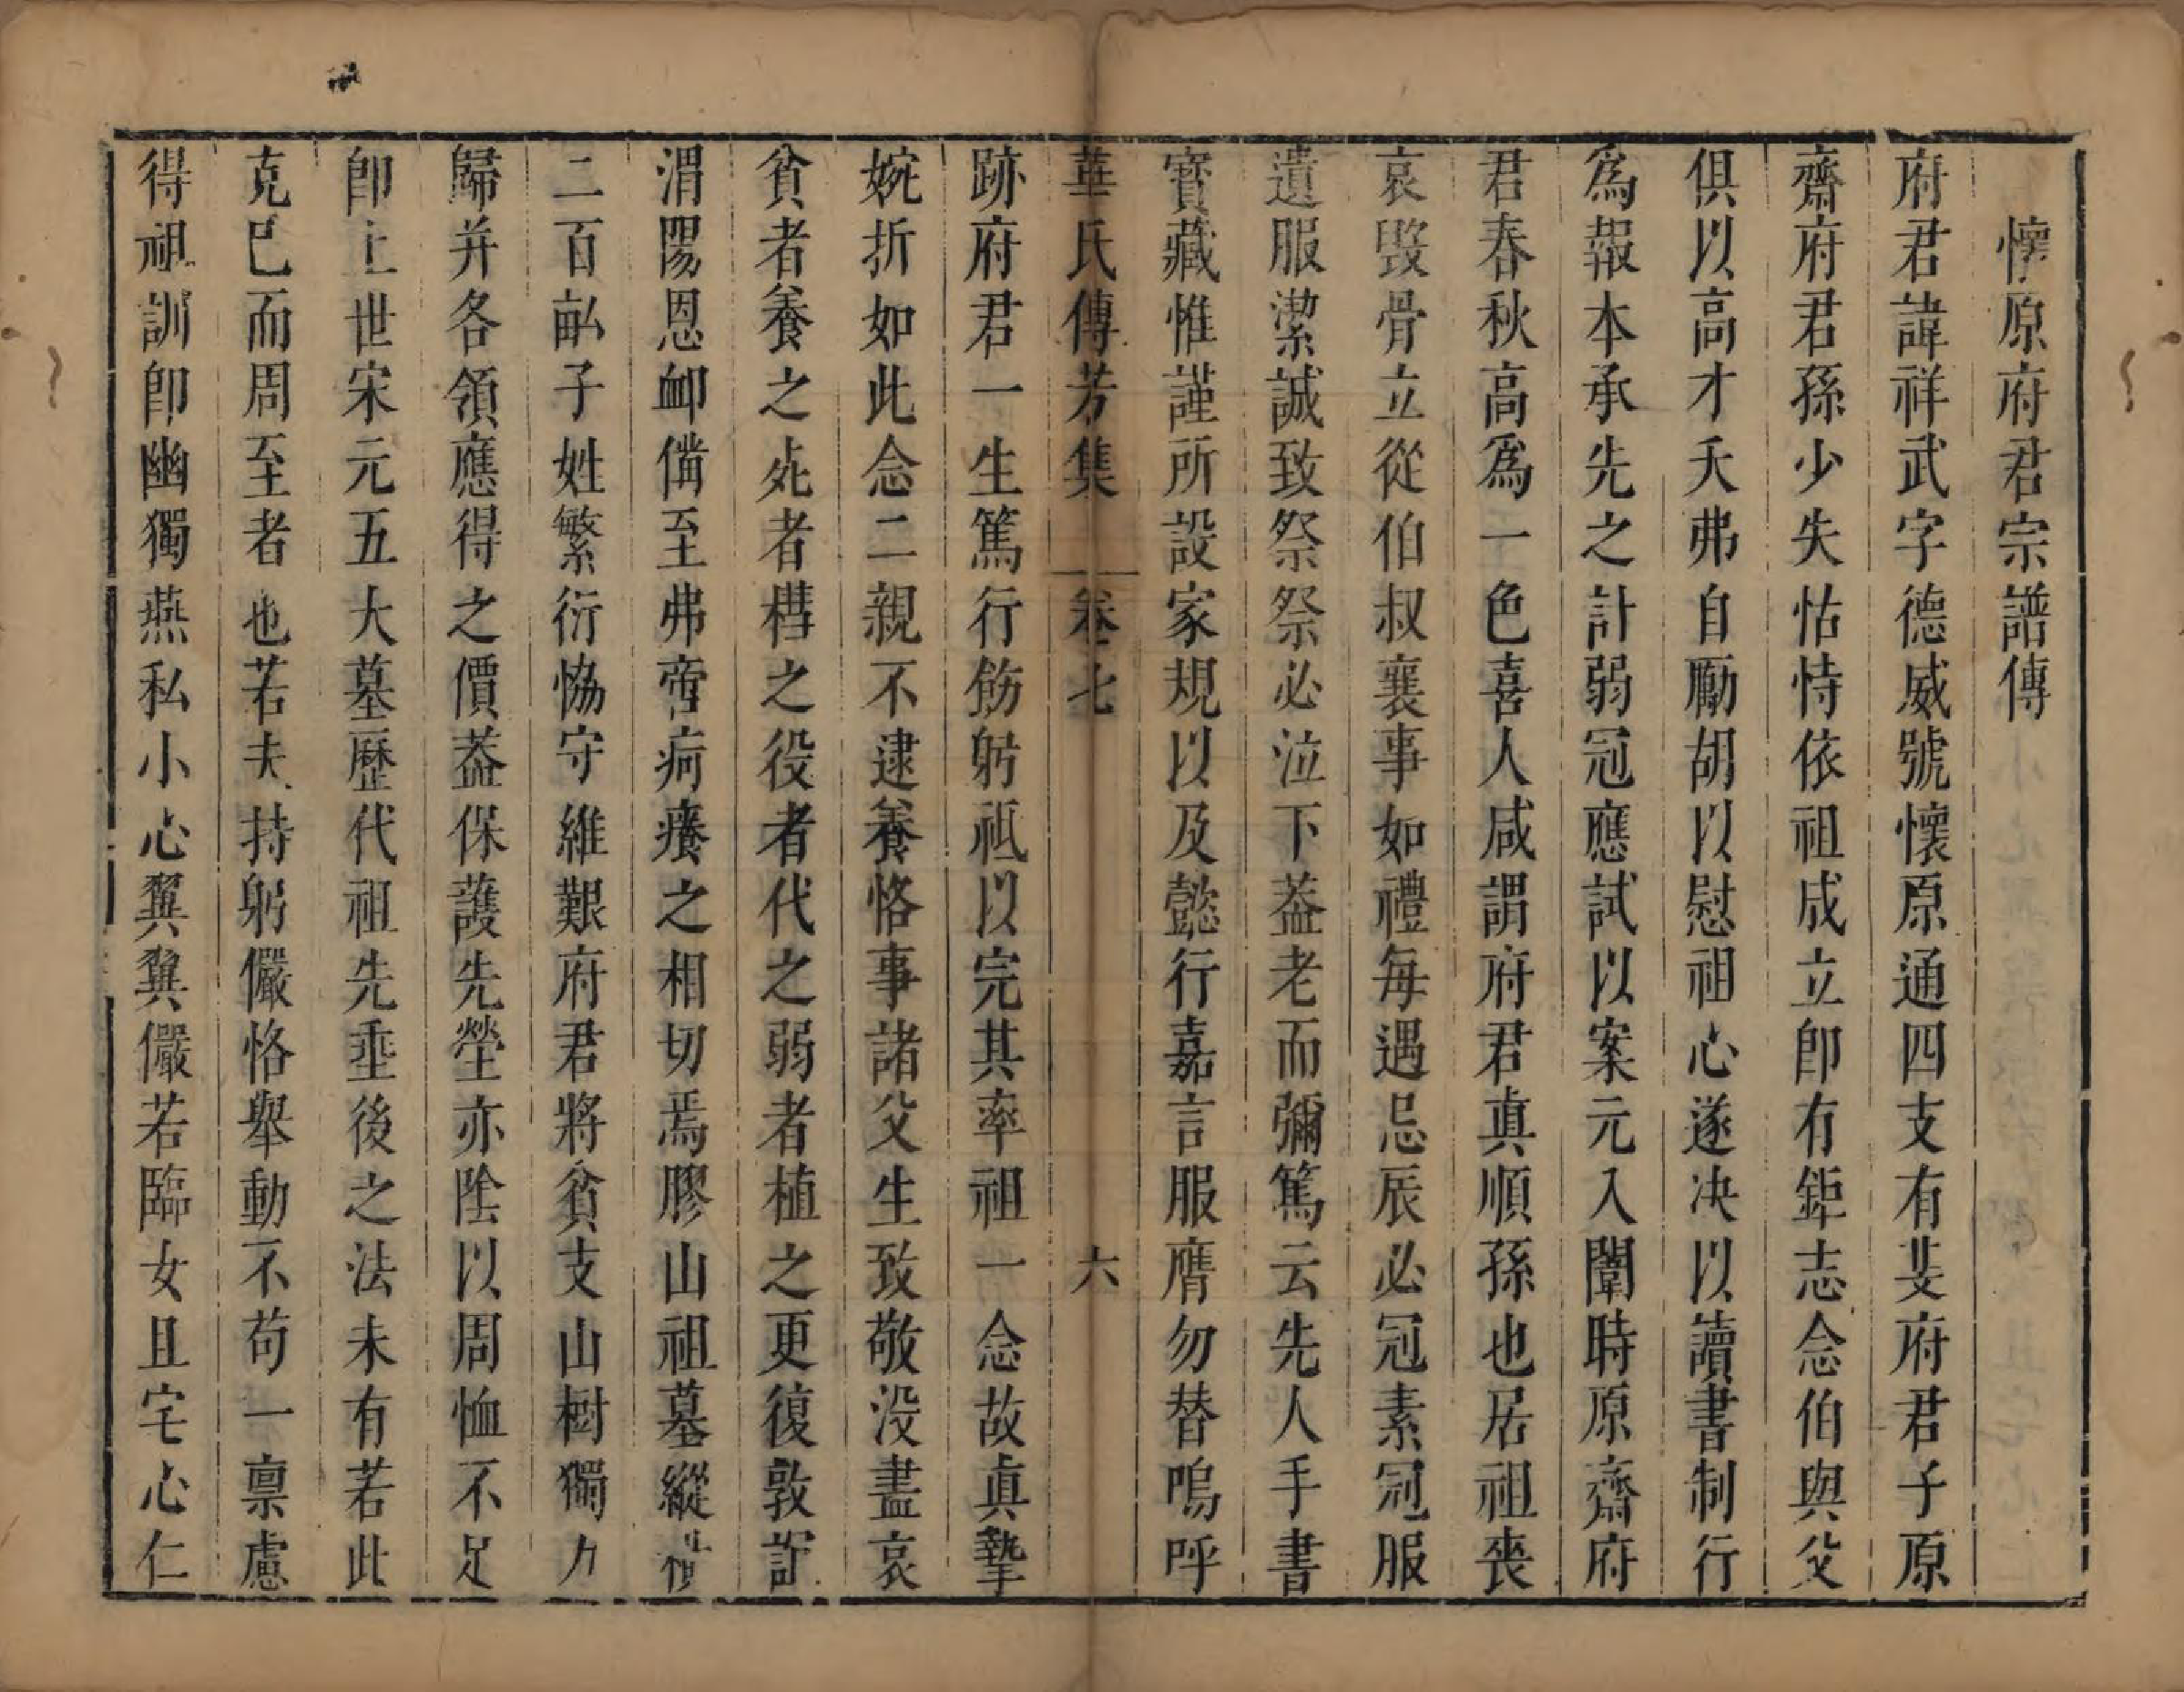 懷原府君宗譜傳
府君諱祥武字德威號懷原通四支有斐府君子原
齋府君孫少失怙恃依祖成立卽有鉅志念伯與父
俱以高才夭弗自勵胡以慰祖心遂决以讀書制行
爲報本承先之計弱冠應試以案元入闈時原齋府
君春秋高爲一色喜人咸謂府君真順孫也居祖喪
哀毀骨立從伯叔襄事如禮每遇忌辰必冠素冠服
遺服潔誠致祭祭必泣下葢老而彌篤云先人手書
寶藏惟謹所設家規以及懿行嘉言服膺勿替嗚呼
華氏傳芳集 卷七 六
跡府君一生篤行飭躬祗以完其率祖一念故真摯
婉折如此念二親不逮養恪事諸父生致敬没盡哀
貧者養之死者槥之役者代之弱者植之更復敦
渭陽恩卹備至弗啻疴癢之相切焉膠山祖墓縱
二百畝子姓繁衍恊守維艱府君將貧支山樹獨力
歸并各領應得之價葢保護先塋亦陰以周恤不足
卽上世宋元五大墓歷代祖先埀後之法未有若此
克巳而周至者也若夫持躬儼恪舉動不苟一禀慮
得祖訓卽幽獨燕私小心翼翼儼若臨女且宅心仁